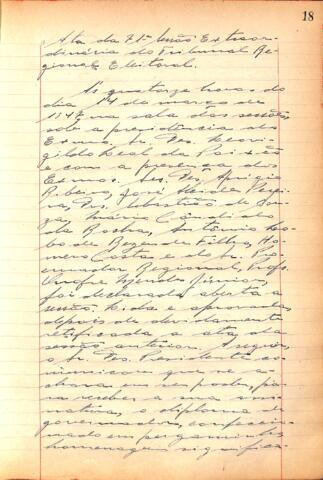 18
Ata da 71ª Sessão Extraor-
dinária do Tribunal Re-
gional Eleitoral.
Às quatorze horas do
dia 14 de março de
1947 na sala das sessões,
sob a presidência do
Exmo. Sr. Des.
Leal da Paixão
e com a presença dos
Exmos. Srs. Des. Aprigio
Ribeiro, José
Drs. Sebastião de Sou-
za, Mário Cândido
da Rocha, Antônio Lo-
bo de Rezende Filho, Ho-
mero Costa e do Sr. Pro-
curador Regional, Prof.
Onofre Mendes Júnior,
foi declarada aberta a
sessão. Lida e aprovada,
depois de devidamente
retificada a ata da
sessão anterior. A seguir,
o Sr. Des. Presidente co-
municou que se a-
chava em seu poder, pa-
ra receber a sua assi-
natura, o diploma de
governador, confeccio-
nado em pergaminho,
homenagem significa-